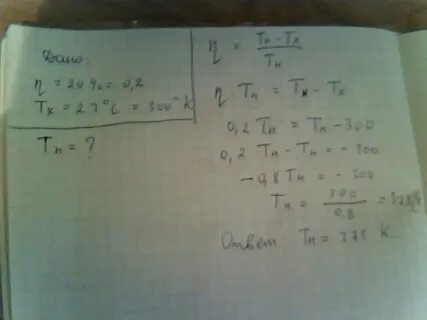 Дано:
η = 20% = 0,2
Tх = 27°C = 300° K
Tн = ?
η = Tн - Tх / Tн
η Tн = Tн - Tх
0,2 Tн = Tн - 300
0,2 Tн - Tн = - 300
-0,8 Tн = - 300
Tн = 300 / 0,8 = 375 K
Ответ Tн = 375 K